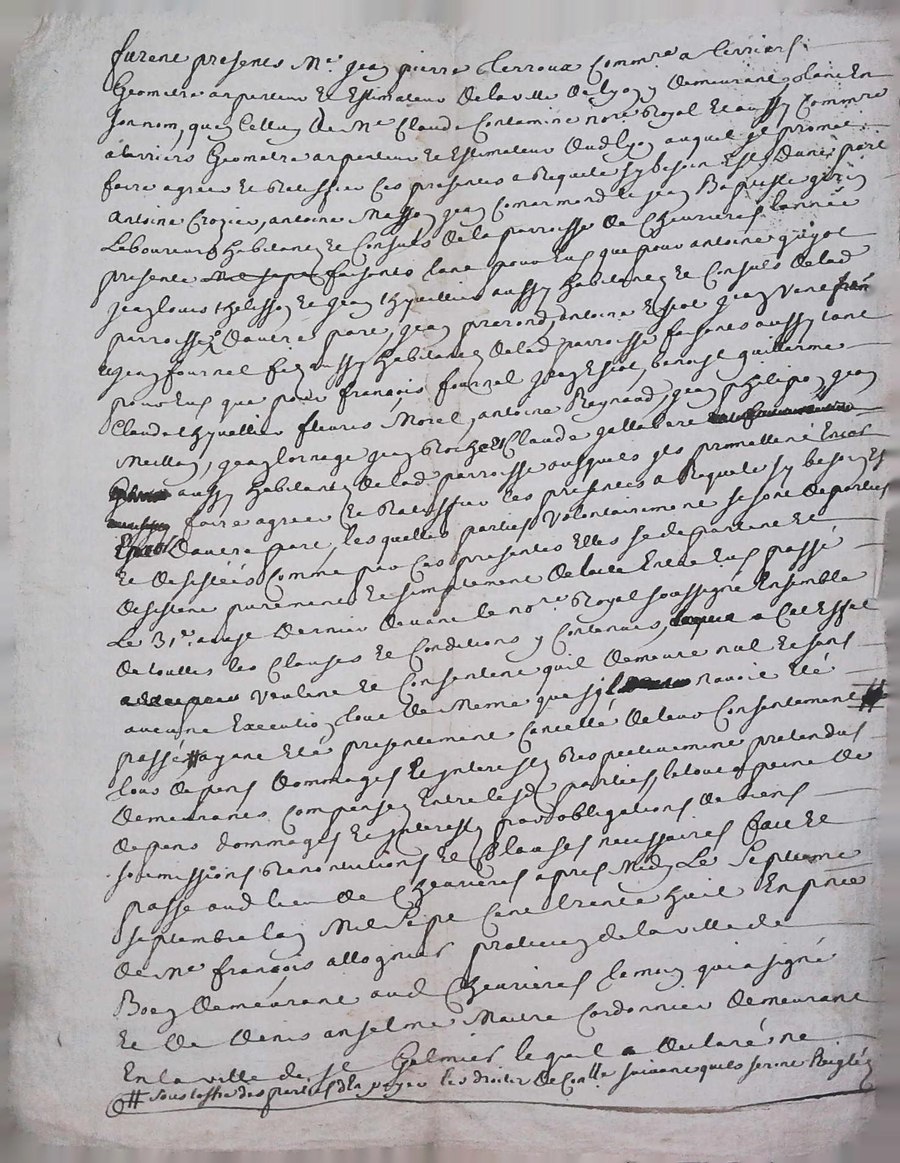 furent presents Me. jean pierre Terroux Commre a Terriers
Geometre arpenteur Et Estimateur dela ville de lyon y demeurant, tant En
son nom, que Celluy De Me Claude Contamine nore Royal Et aussy Commre
a terriers Geometre arpenteur et Estimateur dud lyon auquel il promet
faire agreer Et Ratiffier Ces presentes a Requete sy besoin Est, D'une part
antoine Crozier, antoine Masson jean Comarmond et jean Baptiste
Laboureurs habitants Et Consuls dela parroisse de Chevrieres l'année
presente faisants tant pour Eux que pour antoine guyot
jean louis thelisson Et jean thyvellier aussy habitants Et Consuls delad
parroisse, D'autre part, jean antoine Essiot jean
Et jean fournel fils aussy habitants delad parroisse faisants aussy tant
pour Eux que pour françois fournel jean Essiot, benoist guillarme
Claude thyvellier fleuris Morel, antoine Raynaud, jean philipon, jean
Meillan, jean jean Claude
aussy habitants delad parroisse ausquels ils promettent
faire agreer Et Ratiffier Ces presentes a Requete sy besoin Est
D'autre part, lesquelles parties volontairement se sont departies
Et desistées Comme par Ces presentes Elles se departent Et
desistent purement Et simplement de Entre Eux passé
Le 31e. dernier devant le nore Royal soussigné Ensemble
de touttes les Clauses Et Conditions y Contenues, a Cet Effet
veulent Et Consentent quil demeure nul Et sans
aucune Execution, tout de Meme que sy navoit Eté
passé # ayant Eté presentement Cancellé de leur Consentement #
tous depens dommages Et interests Respectivement pretendus
demeurants Compensez Entre lesd parties le tout a peine de
depens dommages Et interests, par obligations de biens
soumissions Renontiations Et Clauses necessaires fait Et
passé aud lieu de Chevrieres apres Midy Le Septieme
septembre lan Mil sept Cent trente huit En pnce
de Me françois allognier praticien de la ville de
Boen demeurant aud Chevrieres temoin qui a signé
Et de Denis anselme Maitre Cordonnier demeurant
En la ville de st Galmier lequel a declaré ne
# sous loffre des parties de payer les droits de Conlle suivant quils seront Reiglés